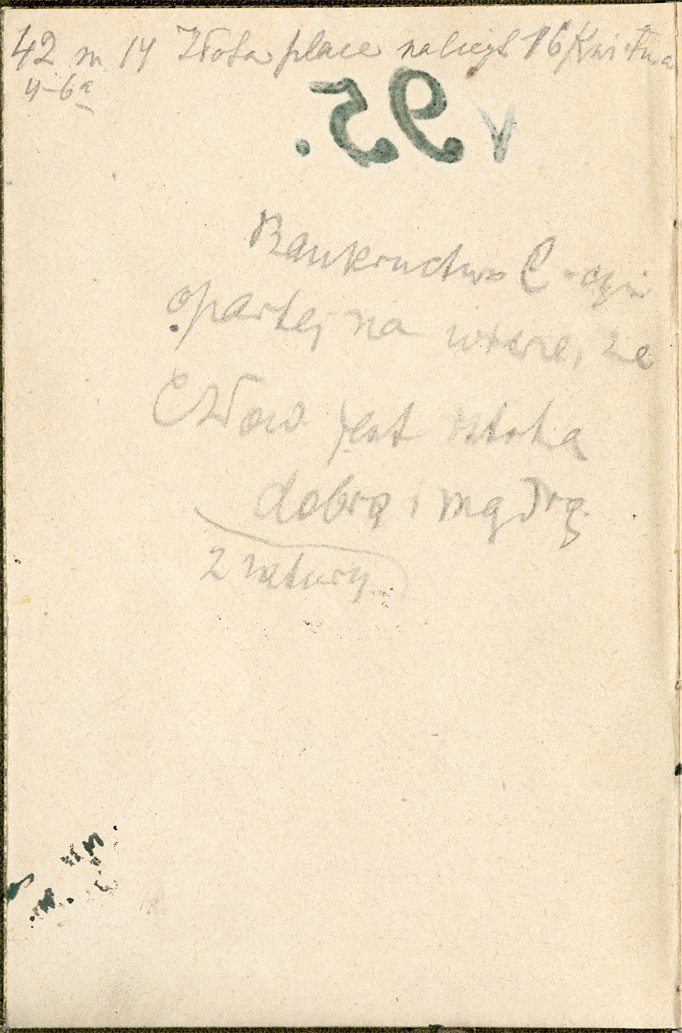 42 m 14 Złota place 16 Kwietnia
4-6a
v 95.
Bankructwo C-cyi
opartej na wierze, że
Człow jest istotą
dobrą i mądrą
z natury